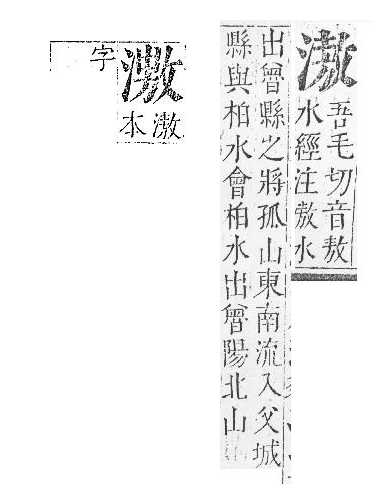 滶
吾毛切音敖
水經注敖水
出曾縣之將孤山東南流入父城
縣與柏水會柏水出曾陽北山
滶本
字